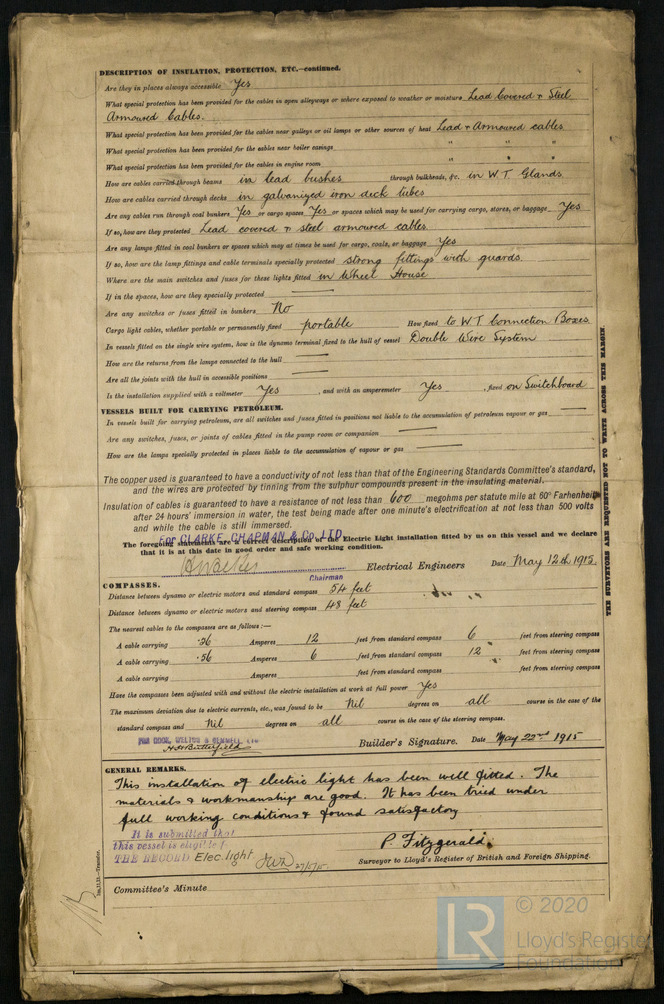 DESCRIPTION OF INSULATION, PROTECTION, ETC.—continued.
Are they in places always accessible Yes
What special protection has been provided for the cables in open alleyways or where exposed to weather or moisture Lead Covered & Steel
Armoured Cables.
What special protection has been provided for the cables near galleys or oil lamps or other sources of heat Lead & Armoured cables
What special protection has been provided for the cables near boiler casings " " "
What special protection has been provided for the cables in engine room " " "
How are cables carried through beams in lead bushes through bulkheads, &c. in W.T. Glands.
How are cables carried through decks in galvanized iron deck tubes
Are any cables run through coal bunkers Yes or cargo spaces Yes or spaces which may be used for carrying cargo, stores, or baggage Yes
If so, how are they protected Lead covered & steel armoured cables
Are any lamps fitted in coal bunkers or spaces which may at times be used for cargo, coals, or baggage Yes
If so, how are the lamp fittings and cable terminals specially protected strong fittings with guards.
Where are the main switches and fuses for these lights fitted in Wheel House
If in the spaces, how are they specially protected ——
Are any switches or fuses fitted in bunkers No
Cargo light cables, whether portable or permanently fixed portable How fixed to W.T Connection Boxes
In vessels fitted on the single wire system, how is the dynamo terminal fixed to the hull of vessel Double Wire System
How are the returns from the lamps connected to the hull ——
Are all the joints with the hull in accessible positions ——
Is the installation supplied with a voltmeter Yes , and with an amperemeter Yes , fixed on Switchboard
VESSELS BUILT FOR CARRYING PETROLEUM.
In vessels built for carrying petroleum, are all switches and fuses fitted in positions not liable to the accumulation of petroleum vapour or gas ——
Are any switches, fuses, or joints of cables fitted in the pump room or companion ——
How are the lamps specially protected in places liable to the accumulation of vapour or gas ——
The copper used is guaranteed to have a conductivity of not less than that of the Engineering Standards Committee's standard,
and the wires are protected by tinning from the sulphur compounds present in the insulating material.
Insulation of cables is guaranteed to have a resistance of not less than 600 megohms per statute mile at 60° Farhenheit
after 24 hours' immersion in water, the test being made after one minute's electrification at not less than 500 volts
and while the cable is still immersed.
For CLARKE, CHAPMAN & Co. LTD.
The foregoing statements are a correct description of the Electric Light installation fitted by us on this vessel and we declare
that it is at this date in good order and safe working condition.
Electrical Engineers Date May 12th 1915.
Chairman
COMPASSES.
Distance between dynamo or electric motors and standard compass 54 feet
Distance between dynamo or electric motors and steering compass 48 feet
The nearest cables to the compasses are as follows:—
A cable carrying .26 Amperes 12 feet from standard compass 6 feet from steering compass
A cable carrying .56 Amperes 6 feet from standard compass 12 feet from steering compass
A cable carrying Amperes feet from standard compass feet from steering compass
Have the compasses been adjusted with and without the electric installation at work at full power Yes
The maximum deviation due to electric currents, etc., was found to be Nil degrees on all course in the case of the
standard compass and Nil degrees on all course in the case of the steering compass.
FOR COOK, WELTON & GEMMELL, LTD
H. H. Butterfield Builder's Signature. Date May 22nd 1915
GENERAL REMARKS.
This installation of electric light has been well fitted. The
materials & workmanship are good. It has been tried under
full working conditions & found satisfactory
It is submitted that
this vessel is eligible f
THE RECORD Elec. light JWD 27/5/15
P. Fitzgerald.
Surveyor to Lloyd's Register of British and Foreign Shipping.
Committee's Minute
THE SURVEYORS ARE REQUESTED NOT TO WRITE ACROSS THIS MARGIN.
LR
© 2020
Lloyd's Register
Foundation